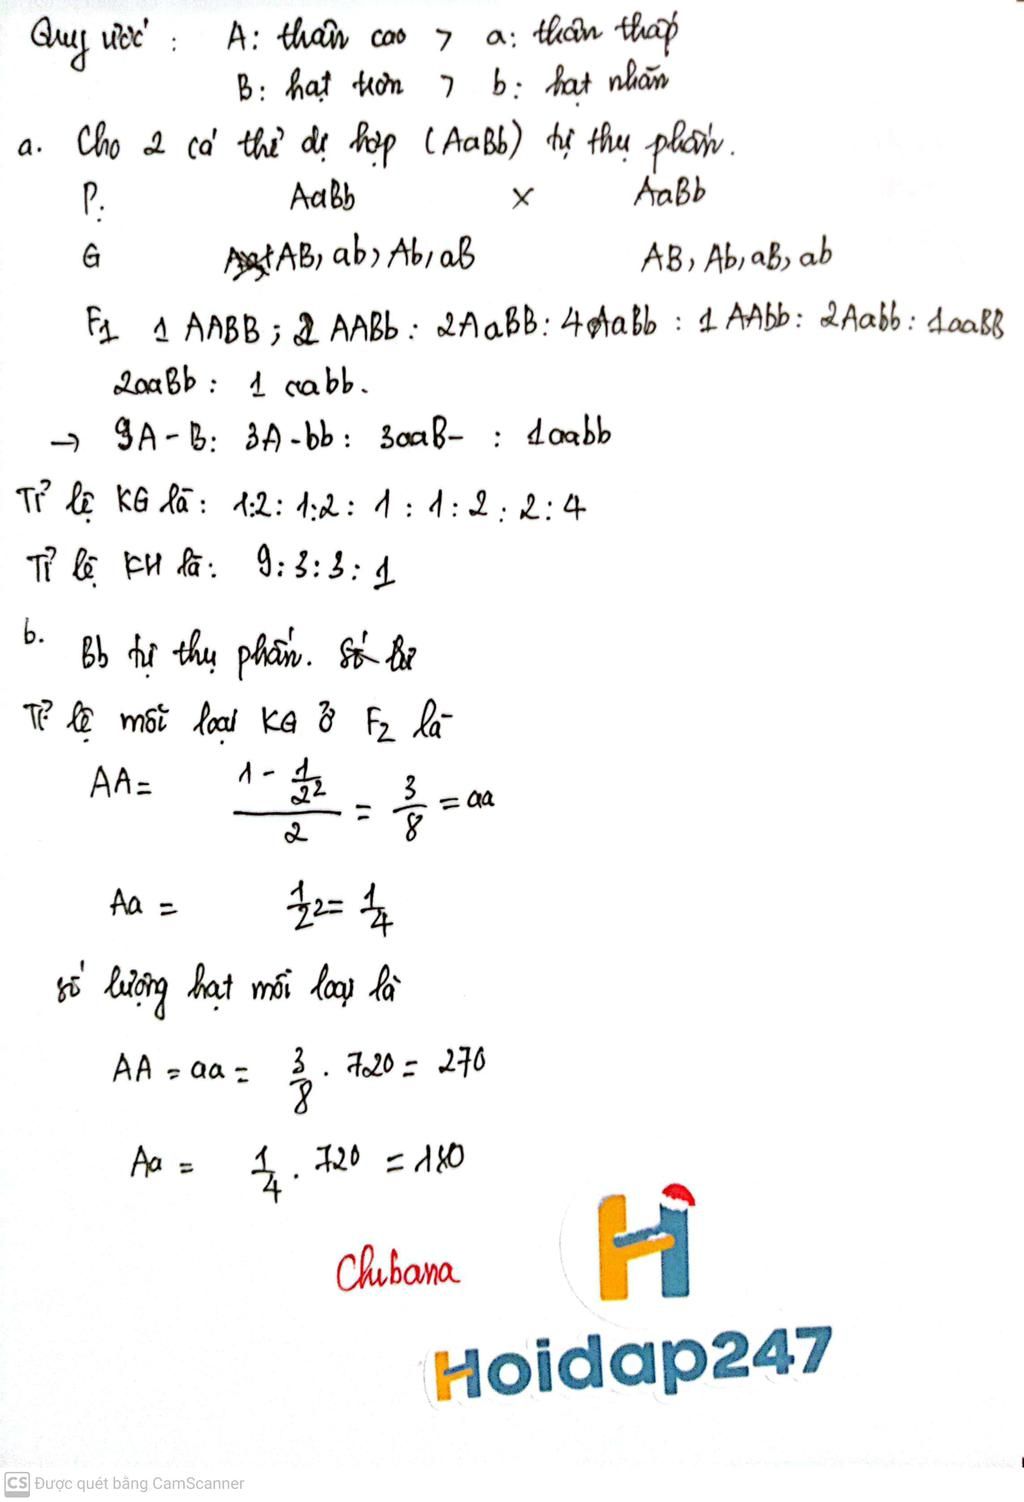 Quy ước : A: thân cao > a: thân thấp
B: hạt trơn > b: hạt nhăn
a. Cho 2 cá thể dị hợp (AaBb) tự thụ phấn.
P: AaBb x AaBb
G AB, ab, Ab, aB AB, Ab, aB, ab
F1 1 AABB ; 2 AABb : 2AaBB : 4AaBb : 1 AAbb : 2Aabb : 1aaBB
2aaBb : 1 aabb.
→ 9A-B: 3A-bb : 3aaB- : 1aabb
Tỉ lệ KG là : 1:2: 1:2: 1 : 1: 2 : 2: 4
Tỉ lệ KH là: 9: 3: 3: 1
b. Bb tự thụ phấn.
Tỉ lệ mỗi loại KG ở F2 là
AA = (1 - 1/2²)/2 = 3/8 = aa
Aa = 1/2² = 1/4
số lượng hạt mỗi loại là
AA = aa = 3/8 . 720 = 270
Aa = 1/4 . 720 = 180
Chibana
Hoidap247
CS Được quét bằng CamScanner